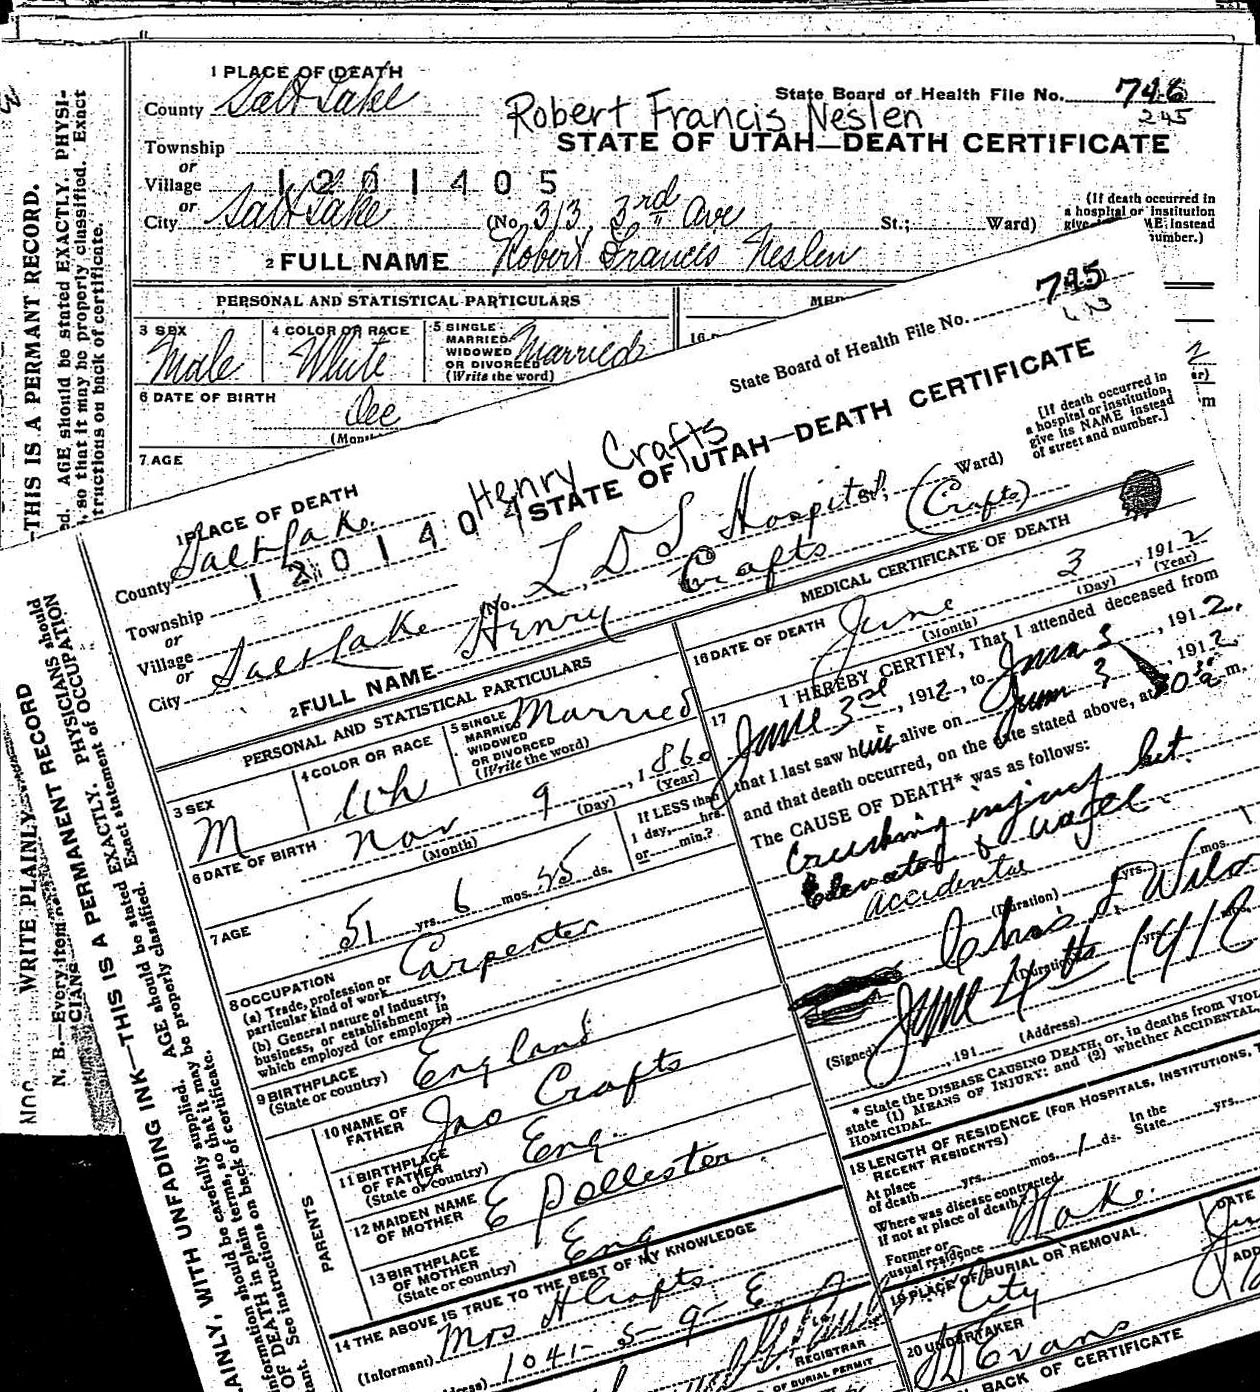 1 PLACE OF DEATH
County Salt Lake
State Board of Health File No. 746
245
Robert Francis Neslen
STATE OF UTAH—DEATH CERTIFICATE
Township
or
Village
1201405
or
City Salt Lake (No. 313, 3rd Ave St.; Ward)
(If death occurred in
a hospital or institution
give NAME instead
number.)
2 FULL NAME Robert Francis Neslen
PERSONAL AND STATISTICAL PARTICULARS
3 SEX
Male
4 COLOR OR RACE
White
5 SINGLE
MARRIED
WIDOWED
OR DIVORCED
(Write the word)
Married
6 DATE OF BIRTH
Dec
7 AGE
—THIS IS A PERMANT RECORD.
AGE should be stated EXACTLY. PHYSI-
so that it may be properly classified. Exact
tructions on back of certificate.
State Board of Health File No. 745
STATE OF UTAH—DEATH CERTIFICATE
Henry Crafts
[If death occurred in
a hospital or institution,
give its NAME instead
of street and number.]
1 PLACE OF DEATH
County Salt Lake
1201404
Township
or
Village
or
City Salt Lake No. L D S Hospital St.; Ward)
2 FULL NAME Henry Crafts (Crafts)
PERSONAL AND STATISTICAL PARTICULARS
3 SEX
M
4 COLOR OR RACE
Wh
5 SINGLE
MARRIED
WIDOWED
OR DIVORCED
(Write the word)
Married
6 DATE OF BIRTH
Nov 9, 1860
(Month) (Day) (Year)
7 AGE
51 yrs. 6 mos. 25 ds.
If LESS than
1 day, hrs.
or min.?
8 OCCUPATION
(a) Trade, profession or
particular kind of work
Carpenter
(b) General nature of industry,
business, or establishment in
which employed (or employer)
9 BIRTHPLACE
(State or country)
England
PARENTS
10 NAME OF
FATHER
Jno Crafts
11 BIRTHPLACE
OF FATHER
(State or country)
Eng.
12 MAIDEN NAME
OF MOTHER
E Pollester
13 BIRTHPLACE
OF MOTHER
(State or country)
Eng
14 THE ABOVE IS TRUE TO THE BEST OF MY KNOWLEDGE
(Informant) Mrs H Crafts
1041-5-9-E
REGISTRAR
OF BURIAL PERMIT
MEDICAL CERTIFICATE OF DEATH
16 DATE OF DEATH
June 3, 1912
(Month) (Day) (Year)
17 I HEREBY CERTIFY, That I attended deceased from
June 3rd, 1912, to June 3, 1912,
that I last saw him alive on June 3, 1912
and that death occurred, on the date stated above, at m.
The CAUSE OF DEATH* was as follows:
crushing injury bet.
Elevator &
accidental
(Duration) yrs. mos.
Chas L
(Duration) yrs.
June 4th 1912
(Signed)
, 191 (Address)
* State the DISEASE CAUSING DEATH, or, in deaths from VIOL
state (1) MEANS OF INJURY: and (2) whether ACCIDENTAL,
HOMICIDAL
18 LENGTH OF RESIDENCE (FOR HOSPITALS, INSTITUTIONS, T
RECENT RESIDENTS)
At place
of death yrs. mos. 1 ds.
In the
State yrs.
Where was disease contracted,
if not at place of death?
Former or
usual residence
19 PLACE OF BURIAL OR REMOVAL
City
DATE
20 UNDERTAKER
Evans
BACK OF CERTIFICATE
WRITE PLAINLY
AINLY, WITH UNFADING INK—THIS IS A PERMANENT RECORD
N. B.—Every item
information should be carefully supplied. AGE should be stated EXACTLY. PHYSICIANS should
OF DEATH in plain terms, so that it may be properly classified. Exact statement of OCCUPATION
See instructions on back of certificate.